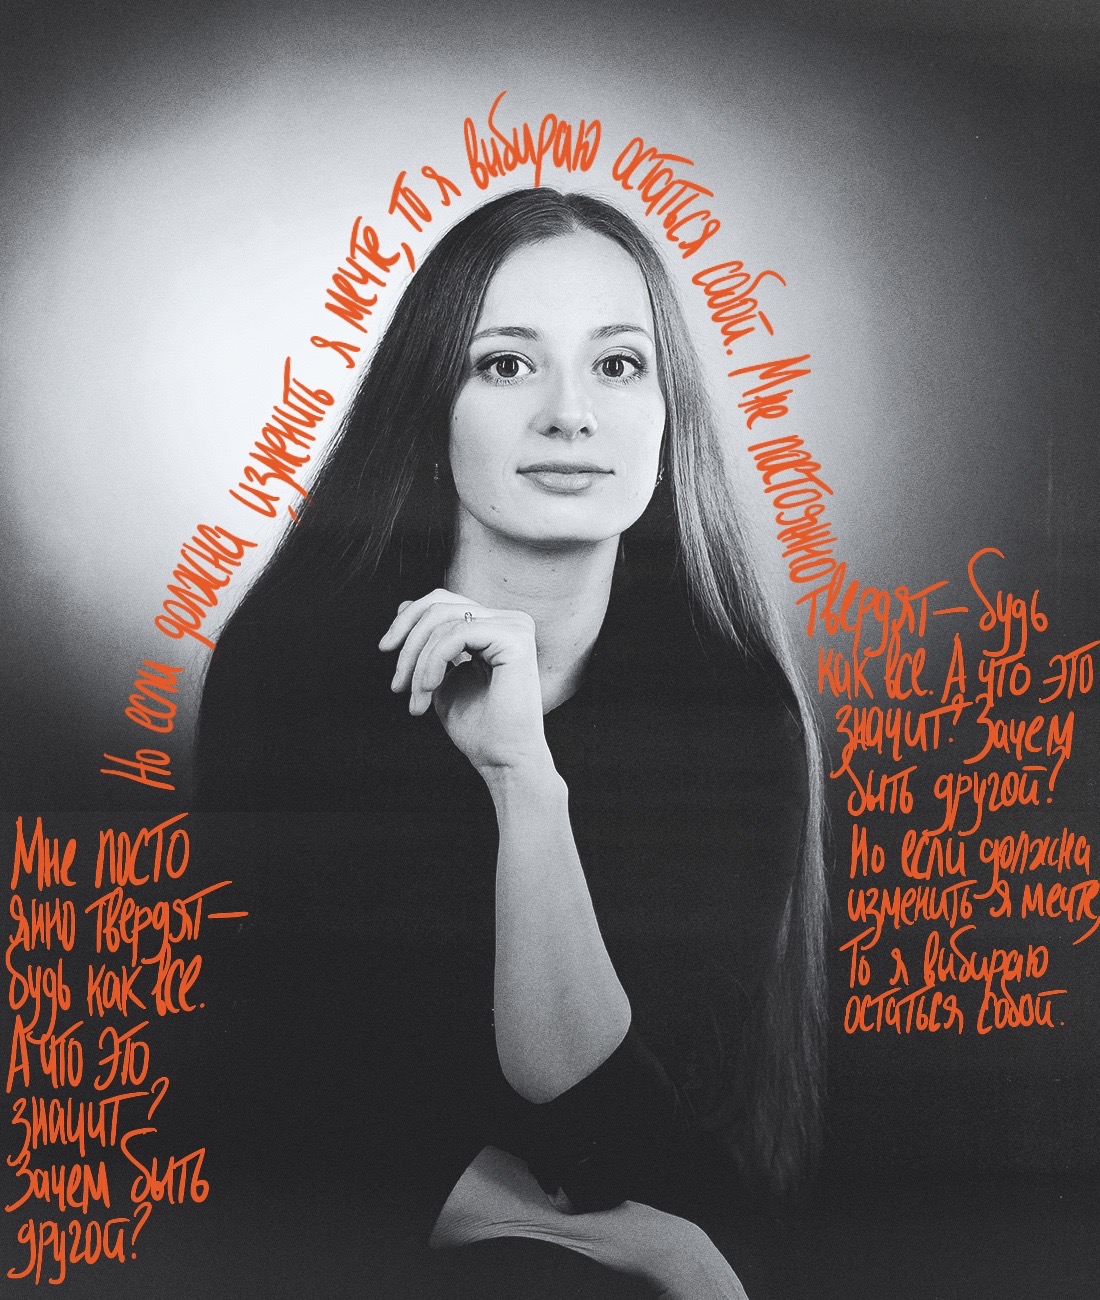 Мне посто
янно твердят—
будь как все.
А что это
значит?
Зачем быть
другой?
Но если должна изменить я мечте, то я вибираю остаться собой. Мне постоянно
твердят— будь
как все. А что это
значит? Зачем
быть другой?
Но если должна
изменить я мечте,
то я вибираю
остаться собой.